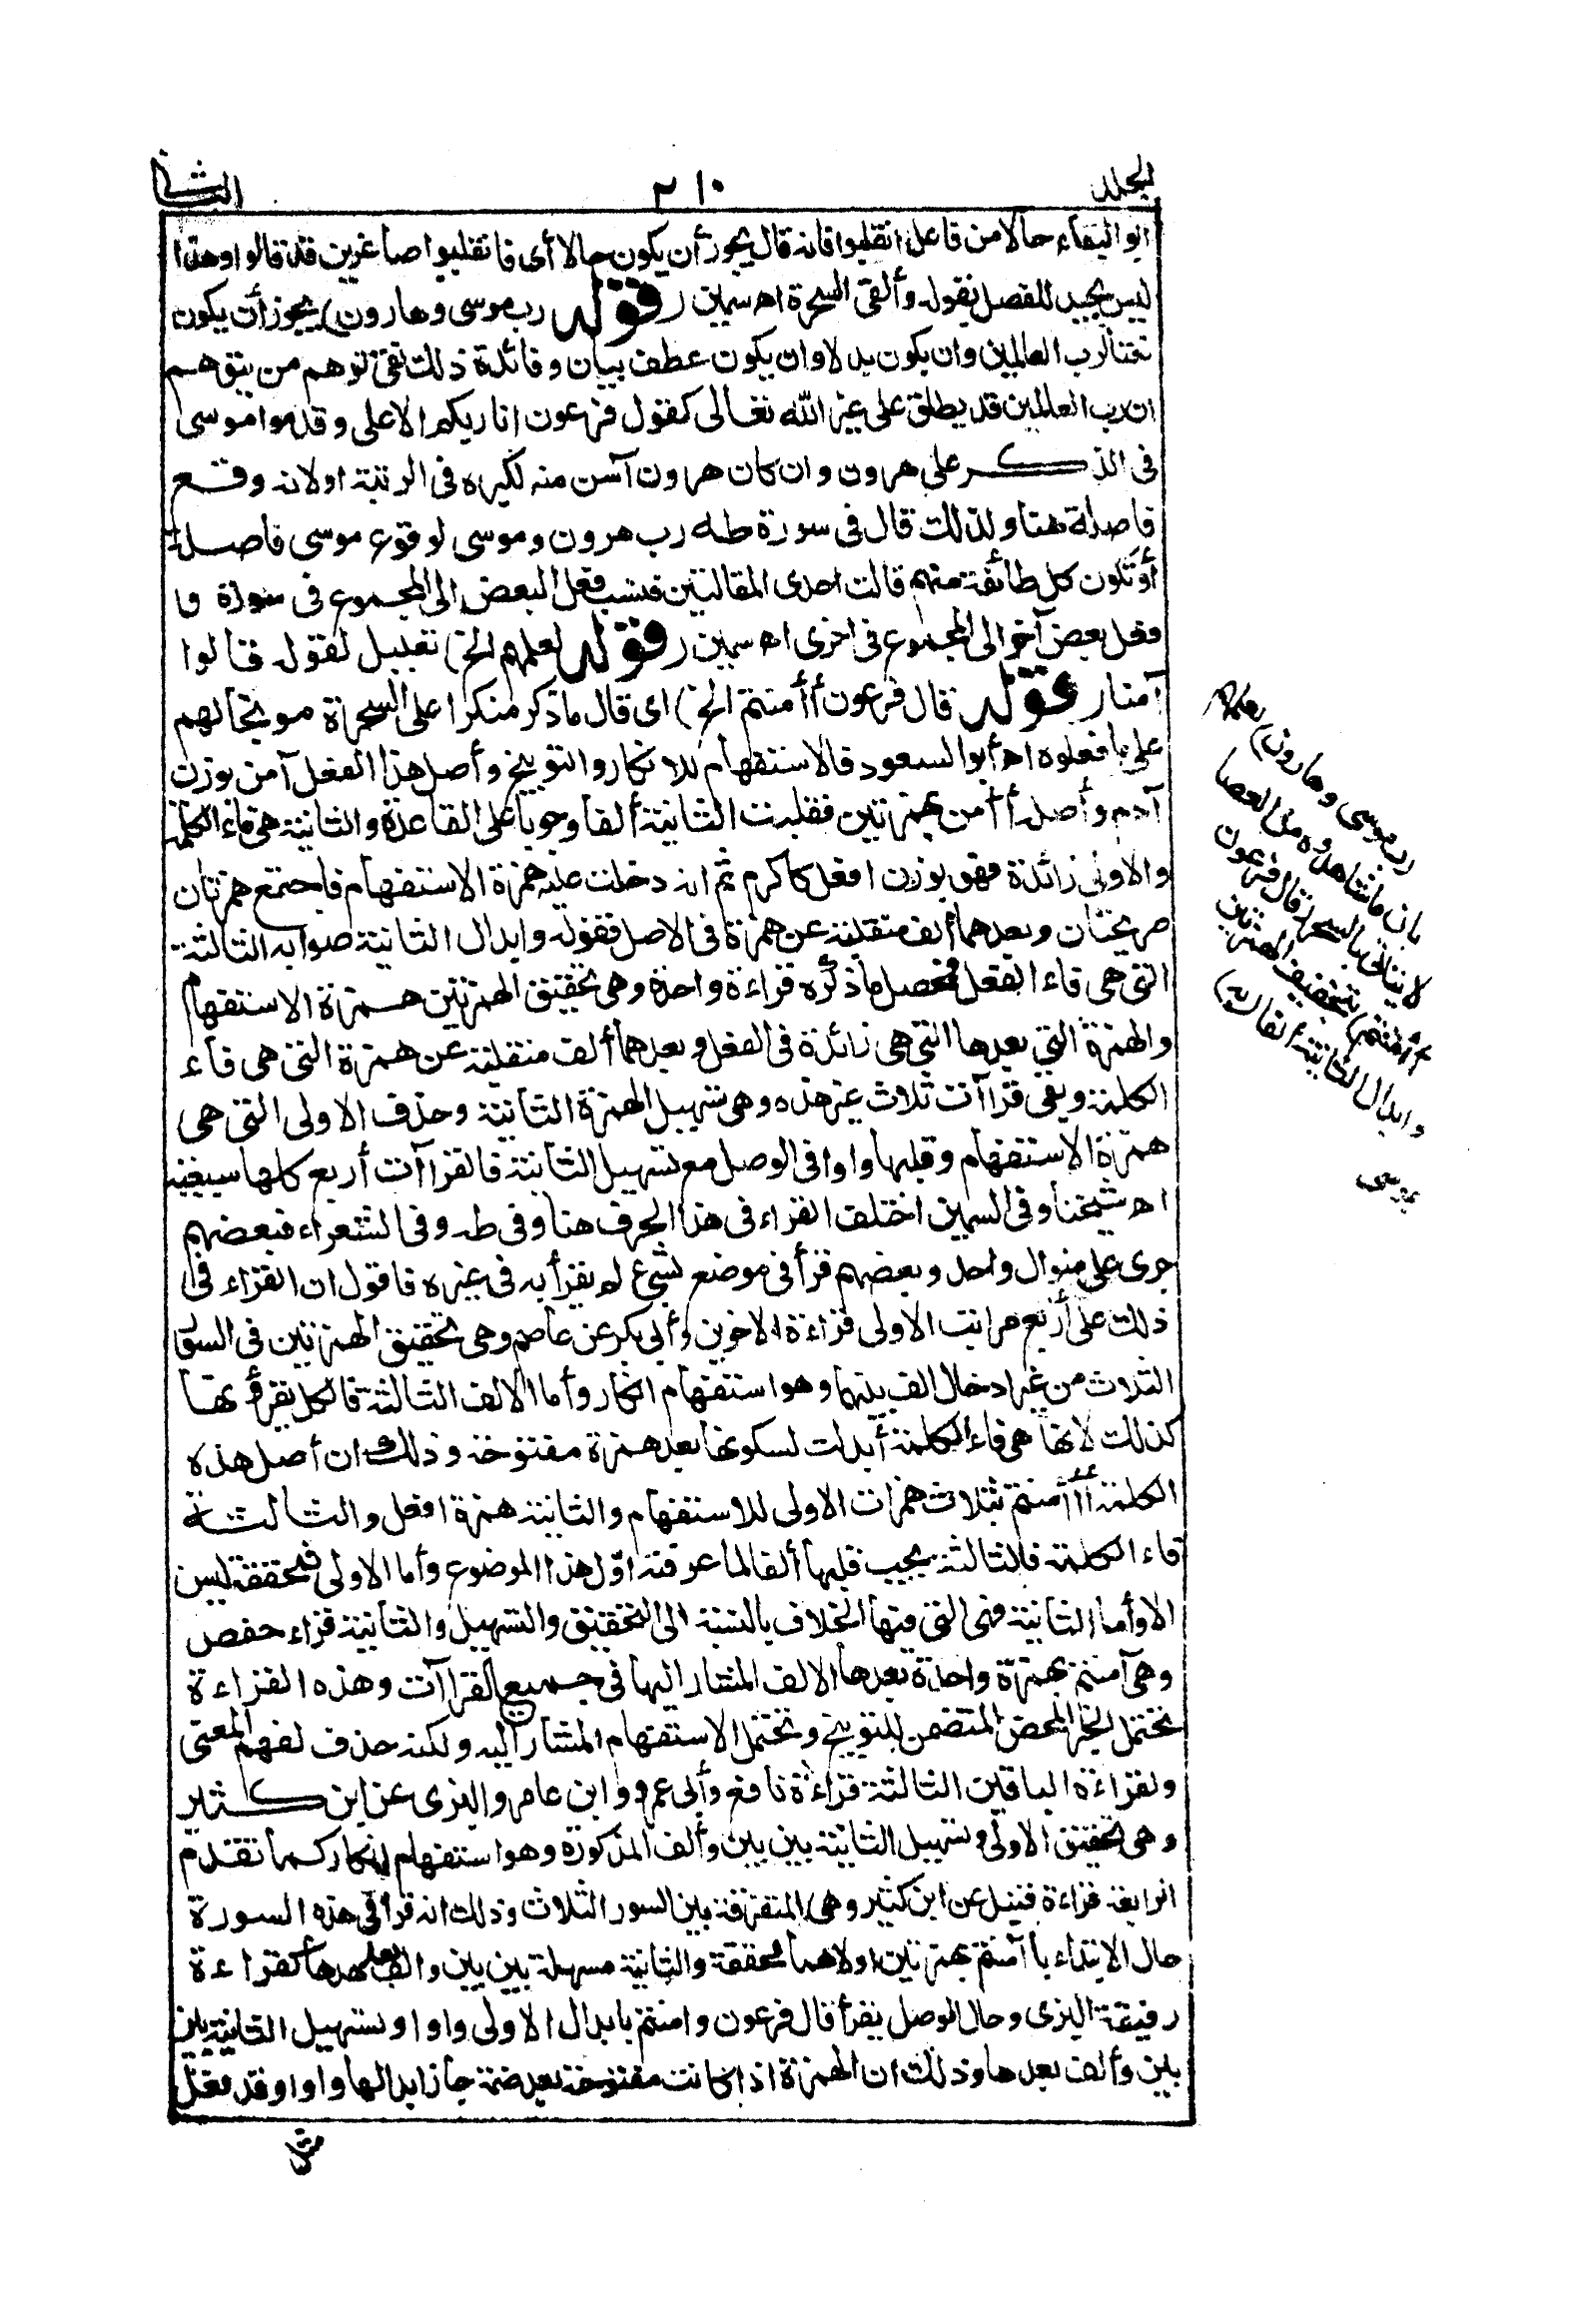 المجلد ٢١٠ الثانى
ابو البقاء حالا من فاعل انقلبوا فانه قال يجوز أن يكون حالا أى فانقلبوا صاغرين قد قالوا وهذا
ليس بجيد للفصل بقوله وألقى السحرة اه سمين (قوله رب موسى وهارون) يجوز أن يكون
نعتا لرب العالمين وان يكون بدلا وان يكون عطف بيان وفائدة ذلك نفى توهم من يتوهم
ان رب العالمين قد يطلق على غير الله تعالى كقول فرعون انا ربكم الاعلى وقدموا موسى
فى الذكر على هرون وان كان هرون آسن منه لكبره فى الرتبة اولانه وقع
فاصلة هنا ولذلك قال فى سورة طه رب هرون وموسى لوقوع موسى فاصلة
أو تكون كل طائفة منهم قالت احدى المقالتين فنسب فعل البعض الى المجموع فى سورة و
فعل بعض آخر الى المجموع فى اخرى اه سمين (قوله لعلمهم الخ) تعليل لقوله قالوا
آمنا (قوله قال فرعون أأمنتم الخ) اى قال ما ذكر منكرا على السحرة موبخا لهم
على ما فعلوه اه أبو السعود فالاستفهام للانكار والتوبيخ وأصل هذا الفعل آمن بوزن
آدم وأصله أأمن بهمزتين فقلبت الثانية ألفا وجوبا على القاعدة والثانية هى فاء الكلمة
والاولى زائدة فهو بوزن افعل كاكرم ثم انه دخلت عليه همزة الاستفهام فاجتمع همزتان
صريحتان وبعدهما ألف منقلبة عن همزة فى الاصل فقوله وابدال الثانية صوابه الثالثة
التى هى فاء الفعل فمحصل ما ذكره قراءة واحدة وهى تحقيق الهمزتين همزة الاستفهام
والهمزة التى بعدها التى هى زائدة فى الفعل وبعدهما ألف منقلبة عن همزة التى هى فاء
الكلمة وبقى قراآت ثلاث غير هذه وهى تسهيل الهمزة الثانية وحذف الاولى التى هى
همزة الاستفهام وقلبها واوا فى الوصل مع تسهيل الثانية فالقراآت أربع كلها سبعية
اه شيخنا وفى السمين اختلف القراء فى هذا الحرف هنا وفى طه وفى الشعراء فبعضهم
جرى على منوال واحد وبعضهم قرأ فى موضع بشئ لم يقرأ به فى غيره فاقول ان القراء فى
ذلك على أربع مراتب الاولى قراءة الاخوين وأبى بكر عن عاصم وهى تحقيق الهمزتين فى السور
الثلاث من غير ادخال الف بينهما وهو استفهام انكار وأما الالف الثالثة فالكل يقرؤنها
كذلك لانها هى فاء الكلمة أبدلت لسكونها بعد همزة مفتوحة وذلك ان أصل هذه
الكلمة أأأمنتم بثلاث همزات الاولى للاستفهام والثانية همزة افعل والثالثة
فاء الكلمة فالثالثة يجب قلبها ألفا لما عرفته اوّل هذا الموضوع وأما الاولى فمحققة ليس
الا وأما الثانية فهى التى فيها الخلاف بالنسبة الى التحقيق والتسهيل والثانية قراءة حفص
وهى آمنتم بهمزة واحدة بعدها الالف المشار اليها فى جميع القراآت وهذه القراءة
تحتمل الخبر المحض المتضمن للتوبيخ وتحتمل الاستفهام المشار اليه ولكنه حذف لفهم المعنى
ولقراءة الباقين الثالثة قراءة نافع وأبى عمرو وابن عامر والبزى عن ابن كثير
وهى تحقيق الاولى وتسهيل الثانية بين بين وألف المذكورة وهو استفهام انكار كما تقدم
الرابعة قراءة قنبل عن ابن كثير وهى المتفرقة بين السور الثلاث وذلك انه قرأ فى هذه السورة
حال الابتداء باآمنتم بهمزتين اولاهما محققة والثانية مسهلة بين بين والف بعدها كقراءة
رفيقة البزى وحال الوصل يقرأ قال فرعون وامنتم بابدال الاولى واوا وتسهيل الثانية بين
بين وألف بعدها وذلك ان الهمزة اذا كانت مفتوحة بعد ضمة جاز ابدالها واوا وقد فعل
رب موسى وهارون) لعلمهم
بان ما شاهدوه من العصا
لا يتأتى بالسحر (قال فرعون
أأمنتم) بتحقيق الهمزتين
وابدال الثانية ألفا (به)
بموسى